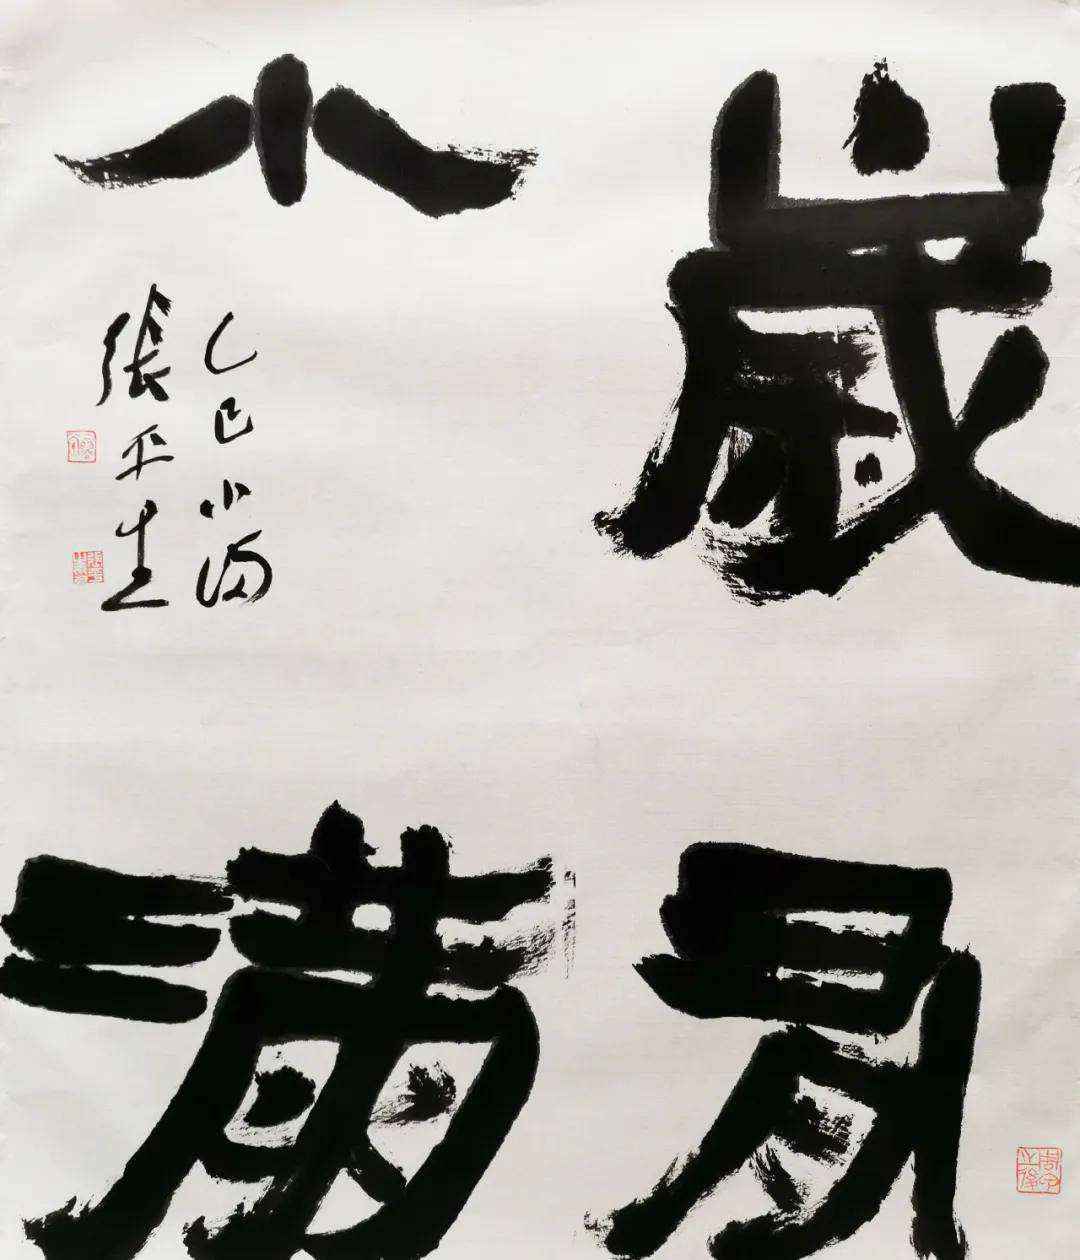 歲易
小滿
乙巳小滿
張平生